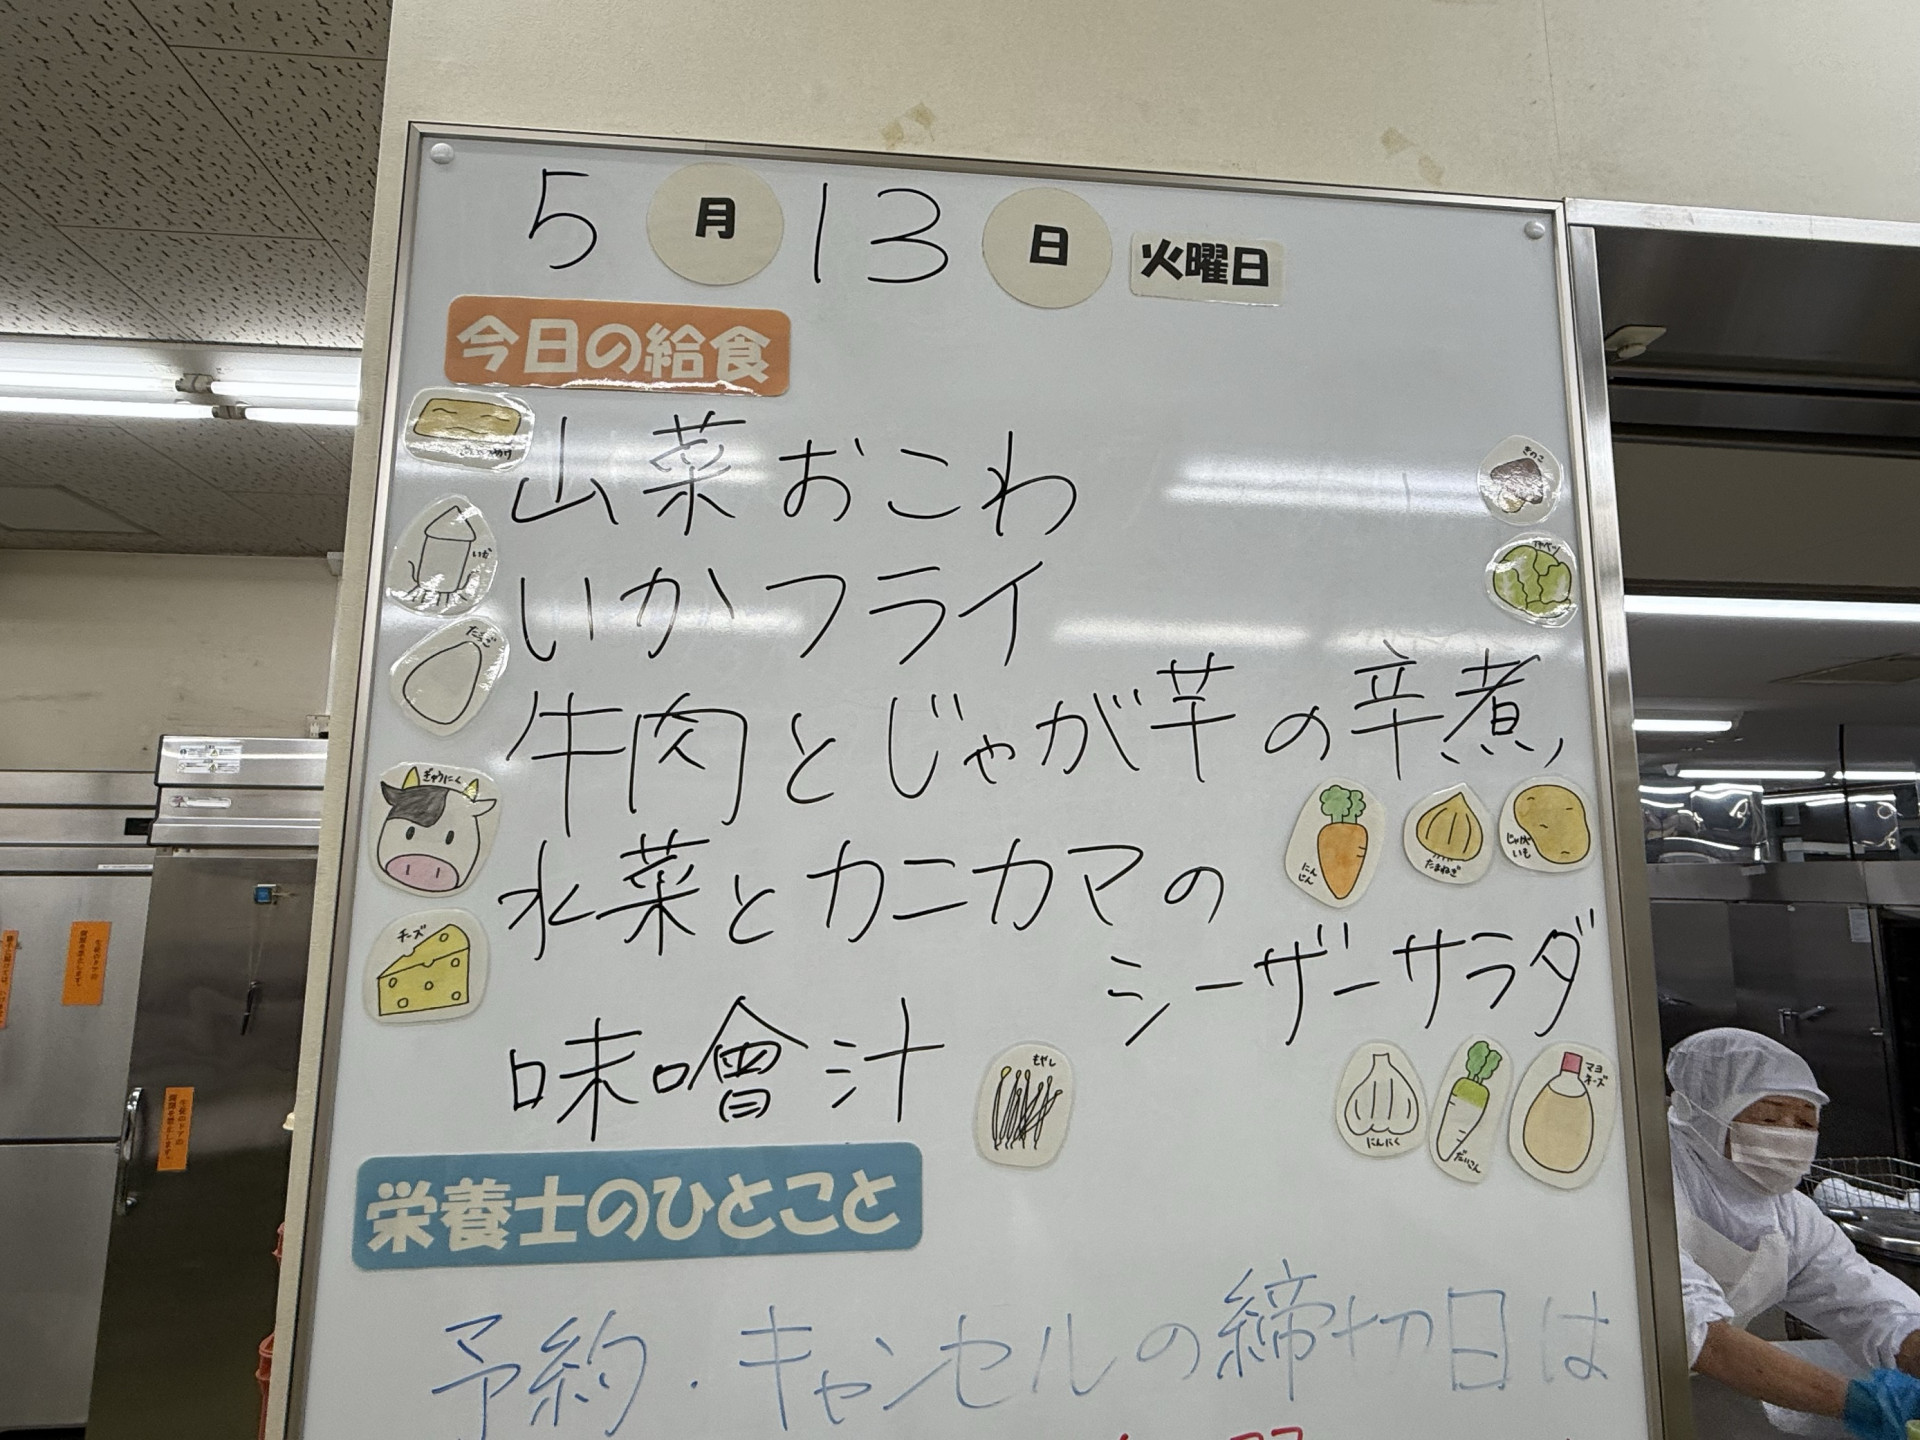 5月13日 火曜日
今日の給食
山菜おこわ
きのこ
いかフライ
いか
キャベツ
たまご
牛肉とじゃが芋の辛煮
ぎゅうにく
にんじん
たまねぎ
じゃがいも
水菜とカニカマの
シーザーサラダ
チーズ
味噌汁
もやし
にんにく
だいこん
マヨネーズ
栄養士のひとこと
予約・キャンセルの締切日は